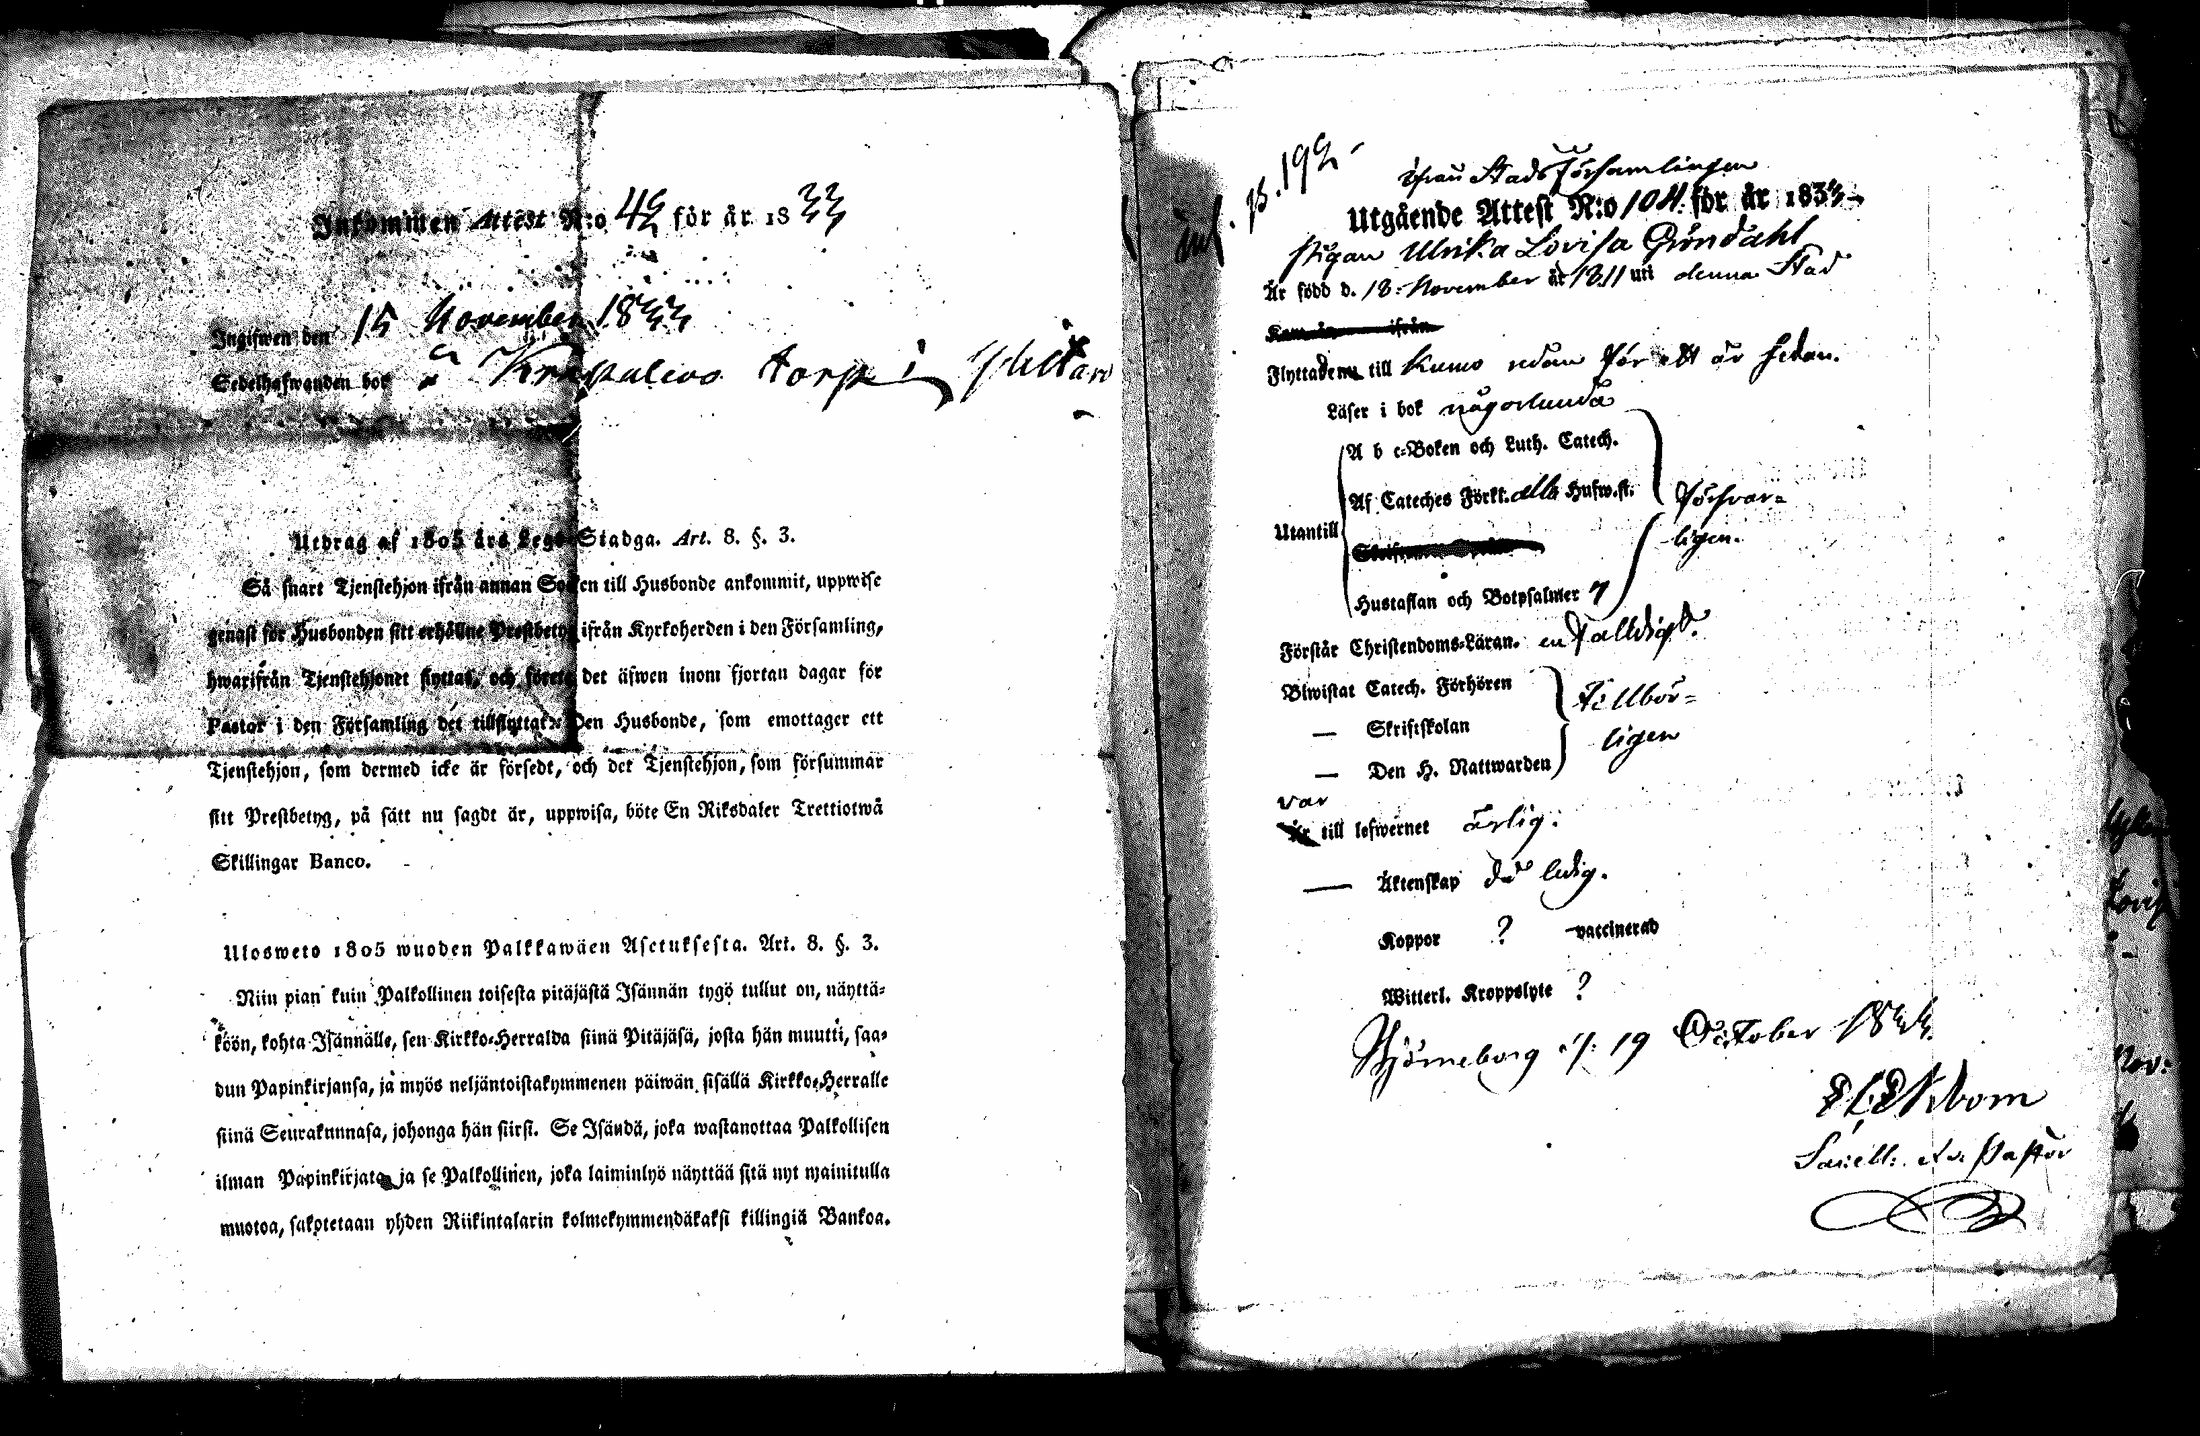 Inkommen Attest N:o 42 för år 1833
Ingifwen den 15 November 1833
Sedelhafwanden bor å torp i
Utdrag af 1805 års Lego-Stadga. Art. 8. §. 3.
Så snart Tjenstehjon ifrån annan Socken till Husbonde ankommit, uppwise
genast för Husbonden sitt erhållne Prestbetyg ifrån Kyrkoherden i den Församling,
hwarifrån Tjenstehjonet flyttat, och förete det äfwen inom fjortan dagar för
Pastor i den Församling det tillflyttat. Den Husbonde, som emottager ett
Tjenstehjon, som dermed icke är försedt, och det Tjenstehjon, som försummar
sitt Prestbetyg, på sätt nu sagdt är, uppwisa, böte En Riksdaler Trettiotwå
Skillingar Banco.
Ulosweto 1805 wuoden Palkkawäen Asetuksesta. Art. 8. §. 3.
Niin pian kuin Palkollinen toisesta pitäjästä Isännän tygö tullut on, näyttä-
köön, kohta Isännälle, sen Kirkko-Herralda siinä Pitäjäsä, josta hän muutti, saa-
dun Papinkirjansa, ja myös neljäntoistakymmenen päiwän sisällä Kirkko-Herralle
siinä Seurakunnasa, johonga hän siirsi. Se Isändä, joka wastanottaa Palkollisen
ilman Papinkirjata ja se Palkollinen, joka laiminlyö näyttää sitä nyt mainitulla
muotoa, sakotetaan yhden Riikintalarin kolmekymmendäkaksi killingiä Bankoa.
p. 192
ifrån Stads Församlingen
Utgående Attest N:o 104 för år 1833
Pigan Ulrika Lovisa Gröndahl
Är född d. 18 November år 1811 uti denna Stad
Flyttade till Kumo redan för ett år sedan.
Läser i bok någorlunda
A b c-Boken och Luth. Catech.
Af Cateches Förkl. alla Hufw.st.
Försvar-
ligen.
Utantill
Hustaflan och Botpsalmer 7
Förstår Christendoms-Läran. enfaldigt.
Biwistat Catech. Förhören
Tillbör-
— Skriftskolan
ligen
— Den H. Nattwarden
var
till lefwernet ärlig.
— Äktenskap då ledig.
Koppor ? vaccinerad
Witterl. Kroppslyte ?
Björneborg d. 19 October 1833.
Ekbom
Pastor